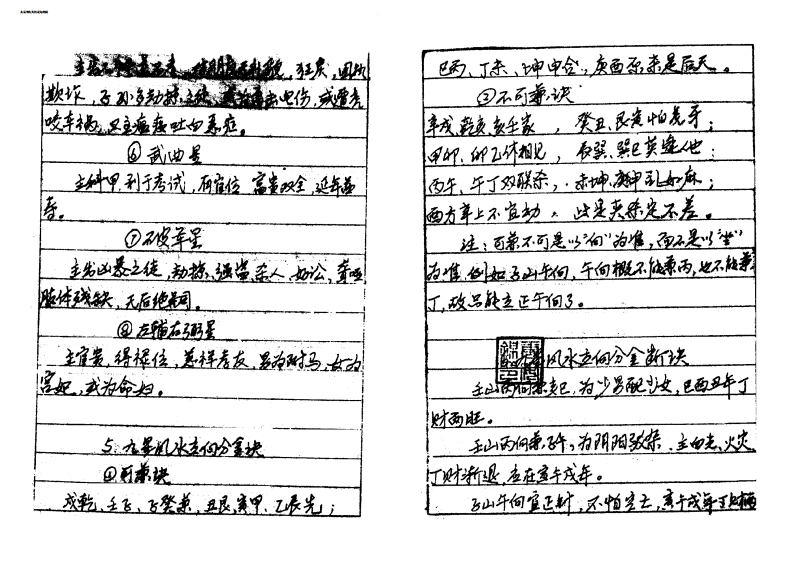 欺诈，
咬车祸，只主瘟疫吐血恶症。
⑥ 武曲星
主科甲，利于考试，有官位 富贵双全，延年益
寿。
⑦ 破军星
主出凶暴之徒，劫掠、强盗、杀人、好讼，聋哑
肢体残缺，无后绝嗣同。
⑧ 左辅右弼星
主官贵，得禄位，慈祥孝友，男为附马，女为
宫妃，或为命妇。
5. 九星风水立向分金诀
① 可兼诀
戌乾、壬子、子癸兼，丑艮、寅甲、乙辰先；
巳丙、丁未、坤申合，庚酉原来是后天。
② 不可兼诀
辛戌、乾亥、亥壬家，癸丑、艮寅怕虎牙；
甲卯、卯乙休相见，辰巽、巽巳莫逢他；
丙午、午丁双联杀，未坤、庚申乱如麻；
酉方辛上不宜劫，此是真踪定不差。
注：可兼不可是以“向”为准，而不是以“坐”
为准。例如子山午向，午向概不能兼丙，也不能兼
丁，故只能立正午向了。
风水立向分金断诀
壬山丙向兼亥巳，为少男配少女，巳酉丑年丁
财两旺。
壬山丙向兼子午，为阴阳驳杂，主血光、火灾
丁财渐退，应在寅午戌年。
子山午向宜正针，不怕空亡，寅午戌年丁财